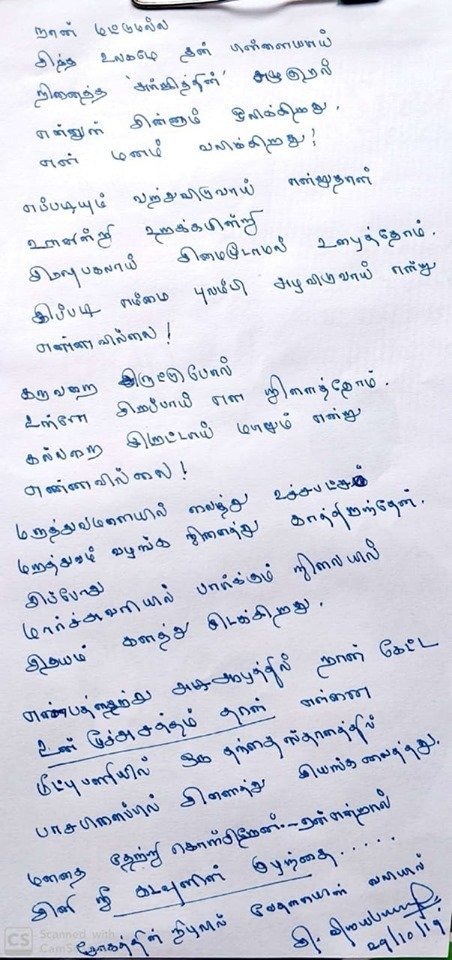 நான் மட்டுமல்ல
இந்த உலகமே தன் பிள்ளையாய்
நினைத்த 'சுர்ஜித்தின்' அழுகுரல்
என்னுள் இன்னும் ஒலிக்கிறது.
என் மனம் வலிக்கிறது!
எப்படியும் வந்துவிடுவாய் என்றுதான்
ஊணின்றி உறக்கமின்றி
இரவுபகலாய் இமைமூடாமல் உழைத்தோம்.
இப்படி எம்மை புலம்பி அழவிடுவாய் என்று
எண்ணவில்லை!
கருவறை இருட்டுபோல்
உள்ளே இருப்பாய் என நினைத்தோம்.
கல்லறை இருட்டாய் மாறும் என்று
எண்ணவில்லை!
மருத்துவமனையில் வைத்து உச்சபட்ச
மருத்துவம் வழங்க நினைத்து காத்திருந்தேன்.
இப்போது
மார்ச்சுவரியில் பார்க்கும் நிலையில்
இதயம் கனத்து கிடக்கிறது.
எண்பத்தைந்து அடி ஆழத்தில் நான் கேட்ட
உன் மூச்சு சத்தம் தான் என்னை
மீட்பு பணியில் ஒரு தந்தை ஸ்தானத்தில்
பாசபிணைப்பில் இணைத்து இயங்க வைத்தது.
மனதை தேற்றி கொள்கிறேன்:- ஏனென்றால்
இனி நீ கடவுளின் குழந்தை.....
சோகத்தின் நிழலில் வேதனையின் வலியில்
29/10/19
CS Scanned with